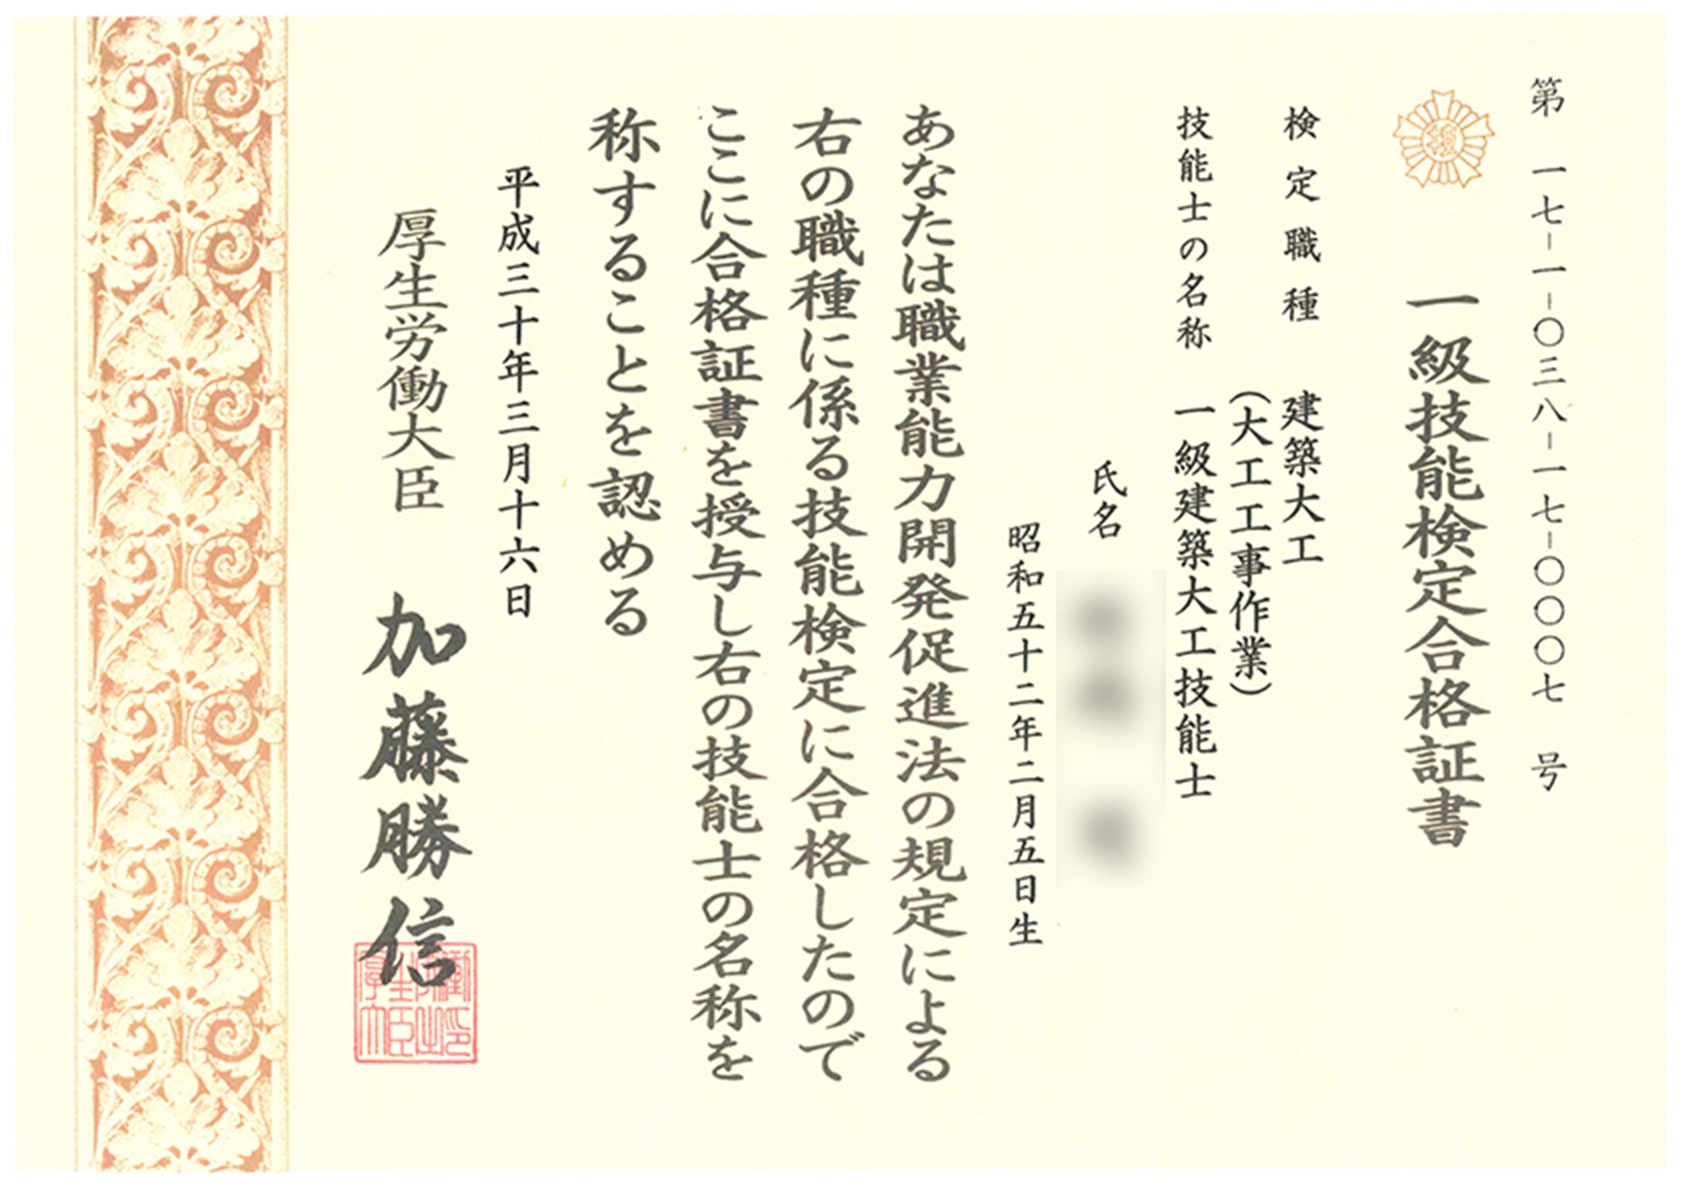 第 一七-一-〇三八-一七-〇〇〇七 号
一級技能検定合格証書
検定職種 建築大工
(大工工事作業)
技能士の名称 一級建築大工技能士
氏名
昭和五十二年二月五日生
あなたは職業能力開発促進法の規定による
右の職種に係る技能検定に合格したので
ここに合格証書を授与し右の技能士の名称を
称することを認める
平成三十年三月十六日
厚生労働大臣 加藤勝信